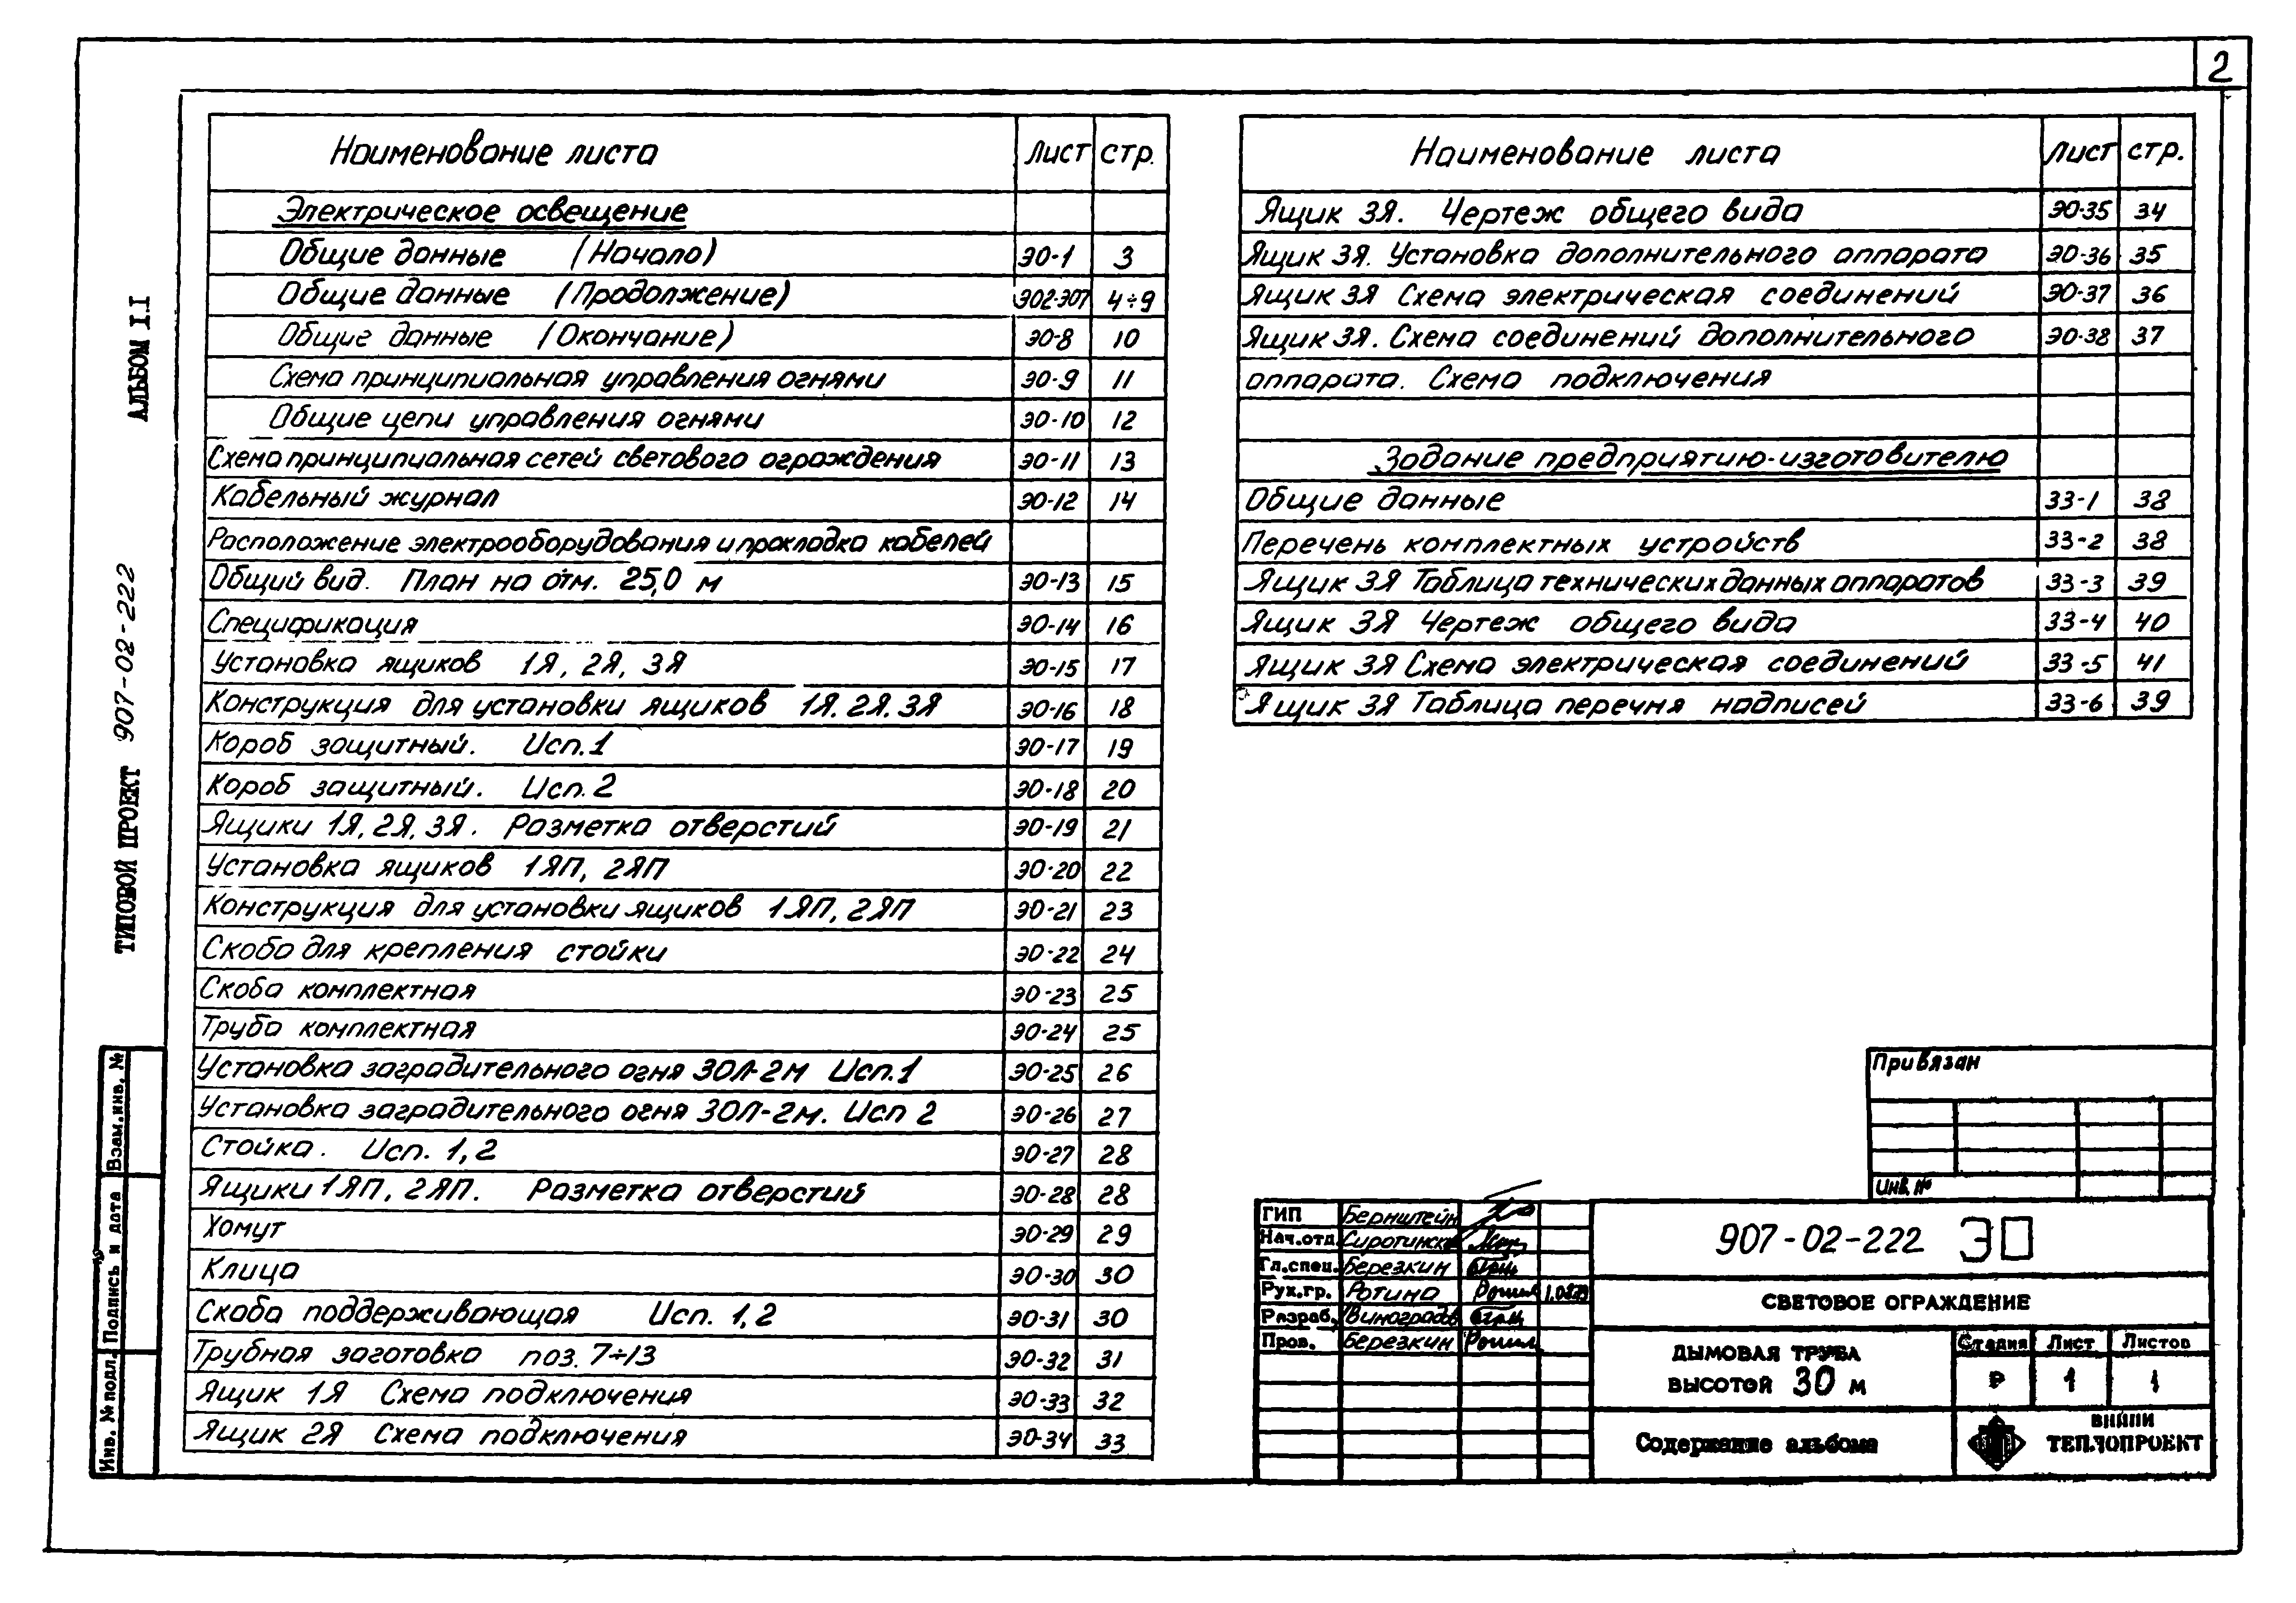 2
Наименование листа Лист стр.
Электрическое освещение
Общие данные (Начало) ЭО-1 3
Общие данные (Продолжение) ЭО2-ЭО7 4÷9
Общие данные (Окончание) ЭО-8 10
Схема принципиальная управления огнями ЭО-9 11
Общие цепи управления огнями ЭО-10 12
Схема принципиальная сетей светового ограждения ЭО-11 13
Кабельный журнал ЭО-12 14
Расположение электрооборудования и прокладка кабелей
Общий вид. План на отм. 25,0 м ЭО-13 15
Спецификация ЭО-14 16
Установка ящиков 1Я, 2Я, 3Я ЭО-15 17
Конструкция для установки ящиков 1Я. 2Я. 3Я ЭО-16 18
Короб защитный. Исп.1 ЭО-17 19
Короб защитный. Исп.2 ЭО-18 20
Ящики 1Я, 2Я, 3Я. Разметка отверстий ЭО-19 21
Установка ящиков 1ЯП, 2ЯП ЭО-20 22
Конструкция для установки ящиков 1ЯП, 2ЯП ЭО-21 23
Скоба для крепления стойки ЭО-22 24
Скоба комплектная ЭО-23 25
Труба комплектная ЭО-24 25
Установка заградительного огня ЗОЛ-2м Исп.1 ЭО-25 26
Установка заградительного огня ЗОЛ-2м. Исп 2 ЭО-26 27
Стойка. Исп. 1,2 ЭО-27 28
Ящики 1ЯП, 2ЯП. Разметка отверстий ЭО-28 28
Хомут ЭО-29 29
Клица ЭО-30 30
Скоба поддерживающая Исп. 1,2 ЭО-31 30
Трубная заготовка поз. 7÷13 ЭО-32 31
Ящик 1Я Схема подключения ЭО-33 32
Ящик 2Я Схема подключения ЭО-34 33
Наименование листа Лист стр.
Ящик 3Я. Чертеж общего вида ЭО-35 34
Ящик 3Я. Установка дополнительного аппарата ЭО-36 35
Ящик 3Я Схема электрическая соединений ЭО-37 36
Ящик 3Я. Схема соединений дополнительного ЭО-38 37
аппарата. Схема подключения
Задание предприятию-изготовителю
Общие данные ЗЗ-1 38
Перечень комплектных устройств ЗЗ-2 38
Ящик 3Я Таблица технических данных аппаратов ЗЗ-3 39
Ящик 3Я Чертеж общего вида ЗЗ-4 40
Ящик 3Я Схема электрическая соединений ЗЗ-5 41
Ящик 3Я Таблица перечня надписей ЗЗ-6 39
АЛЬБОМ I.I
ТИПОВОЙ ПРОЕКТ 907-02-222
Взам.инв. №
Подпись и дата
Инв. № подл.
Привязан
Инв. №
ГИП Бернштейн
Нач.отд.
Гл.спец. Березкин
Рук.гр. Ротина
Разраб. Виноградов
Пров. Березкин
907-02-222 ЭО
СВЕТОВОЕ ОГРАЖДЕНИЕ
ДЫМОВАЯ ТРУБА
ВЫСОТОЙ 30 м
Стадия Лист Листов
Р 1 1
Содержание альбома
ВНИПИ
ТЕПЛОПРОЕКТ